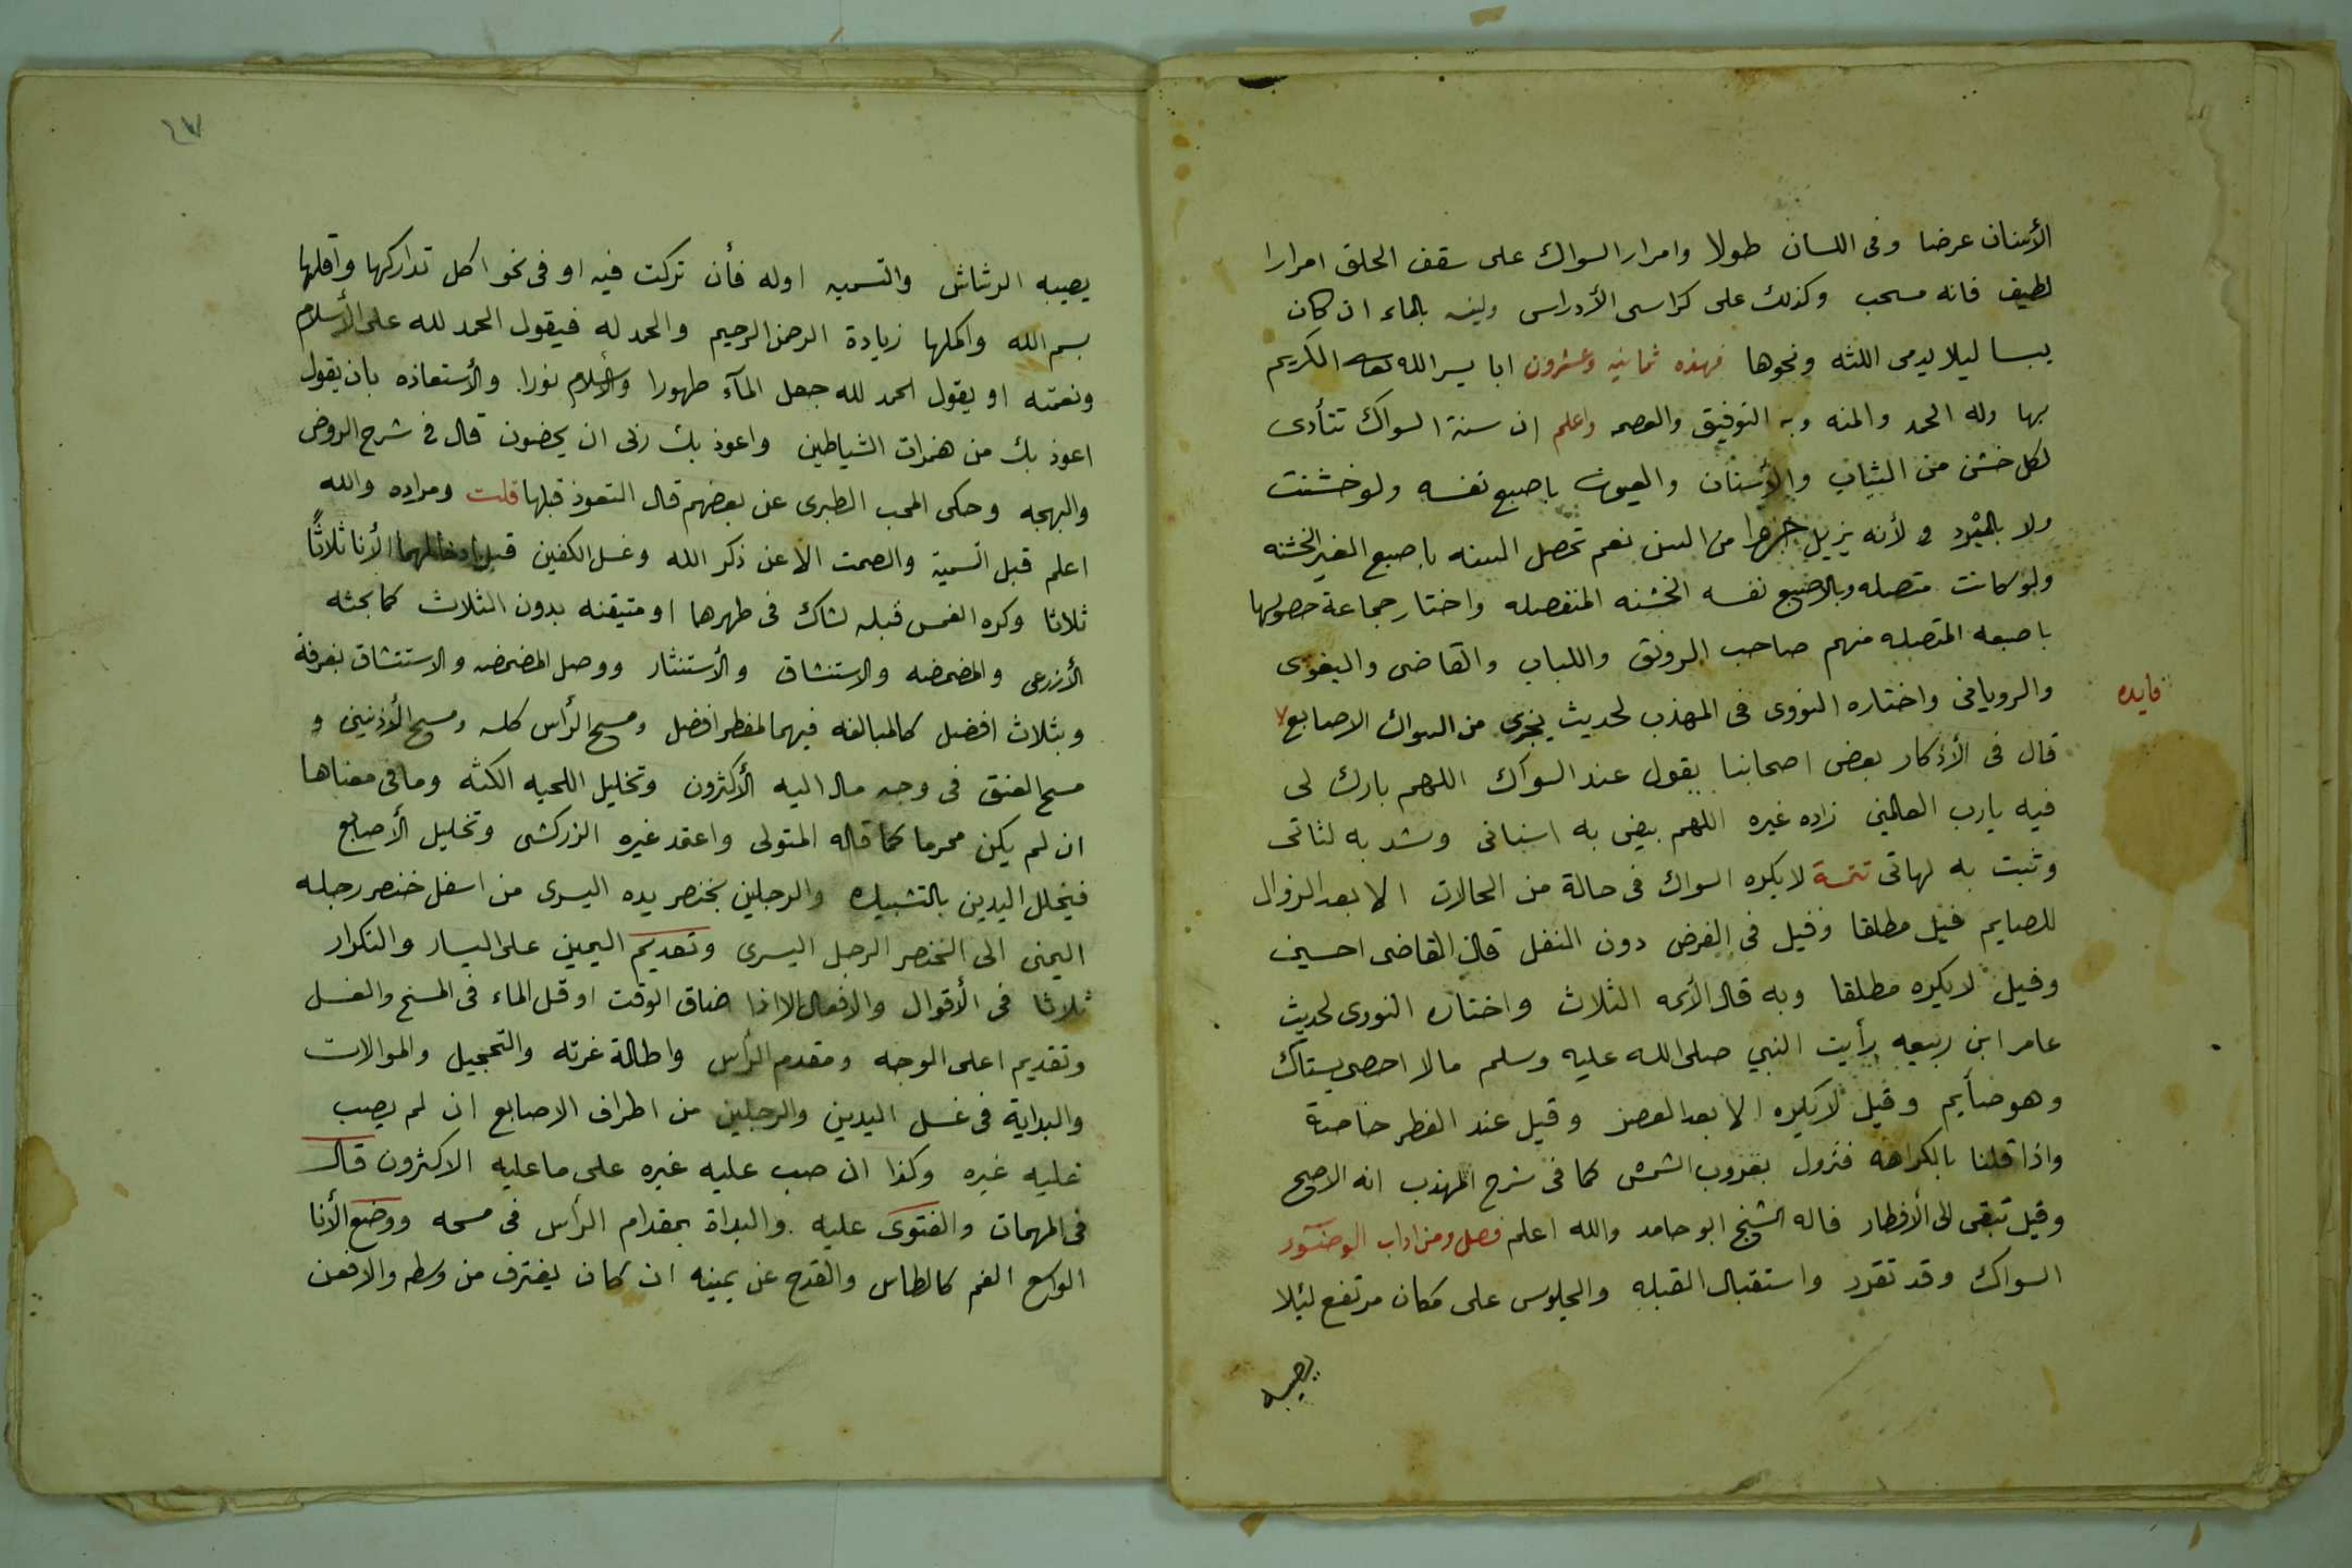 الأسنان عرضا وفى اللسان طولا وامرار السواك على سقف الحلق امرارا
لطيف فانه مسحب وكذلك على كراسى الأدراس ولينه بالماء ان كان
يبسا ليلا يدمى اللثه ونحوها فهذه ثمانيه وعشرون ابا يسر الله الكريم
بها وله الحمد والمنه وبه التوفيق والعصمه واعلم ان سنة السواك تتأدى
لكل خشن من الثياب والأسنان باصبع نفسه ولو خشنت
ولا بالمبرد و لأنه يزيل جزوا من السن نعم تحصل السنه باصبع الغير الخشنه
ولو كانت متصله وبالاصبع نفسه الخشنه المنفصله واختار جماعة حصولها
باصبعه المتصله منهم صاحب الرونق واللباب والقاضى والبغوى
فايده
والرويانى واختاره النووى فى المهذب لحديث يجزى من السواك الاصابع
قال فى الأذكار بعض اصحابنا يقول عند السواك اللهم بارك لى
فيه يارب العالمين زاده غيره اللهم بيض به اسنانى وشد به لثاتى
وثبت به لهاتى تتمة لا يكره السواك فى حالة من الحالات الا بعد الزوال
للصايم قيل مطلقا وقيل فى الفرض دون النفل قال القاضى احسين
وقيل لا يكره مطلقا وبه قال الأئمه الثلاث واختاره النورى لحديث
عامر ابن ربيعه رأيت النبي صلى الله عليه وسلم مالا احصى يستاك
وهو صأيم وقيل لا يكره الا بعد العصر وقيل عند الفطر خاصة
واذا قلنا بالكراهه فتزول بغروب الشمس كما فى شرح المهذب انه الاصح
وقيل تبقى الى الأفطار قاله الشيخ ابو حامد والله اعلم فصل ومن اداب الوضوء
السواك وقد تقرر واستقبال القبله والجلوس على مكان مرتفع لئلا
يصيبه
يصيبه الرشاش والتسميه اوله فأن تركت فيه او فى نحو اكل تداركها واقلها
بسم الله واكملها زيادة الرحمن الرحيم والحمد له فيقول الحمد لله على الأسلام
ونعمته او يقول الحمد لله جعل المآء طهورا والأسلام نورا والأستعاذه بان يقول
اعوذ بك من همزات الشياطين واعوذ بك ربى ان يحضون قال فى شرح الروض
والبهجه وحكى المحب الطبرى عن بعضهم قال التعوذ قبلها قلت ومراده والله
اعلم قبل التسمية والصمت الا عن ذكر الله وغسل الكفين قبل ادخالهما الأنا ثلاثًا
ثلاثا وكره الغمس قبله لشاك فى طهرها او متيقنه بدون الثلاث كما بحثه
الأزرعى والمضمضه والاستنشاق والأستنثار ووصل المضمضه والاستنشاق بغرفة
وبثلاث افضل كالمبالغه فيهما لمفطر افضل ومسح الرأس كله ومسح الأذنين و
مسح العنق فى وجه مال اليه الأكثرون وتخليل اللحيه الكثه وما فى معناها
ان لم يكن محرما كما قاله المتولى واعقد غيره الزركشى وتخليل الأصابع
فيخلل اليدين بالتشبيك والرجلين بخنصر يده اليسرى من اسفل خنصر رجله
اليمنى الى الخنصر الرجل اليسرى وتقديم اليمين على اليسار والتكرار
ثلاثا فى الأقوال والافعال الا اذا ضاق الوقت او قل الماء فى المسح والغسل
وتقديم اعلى الوجه ومقدم الرأس واطالة غرته والتحجيل والموالات
والبداية فى غسل اليدين والرجلين من اطراف الاصابع ان لم يصب
عليه غيره وكذا ان صب عليه غيره على ما عليه الاكثرون قال
فى المهمات والفتوى عليه والبداة بمقدام الرأس فى مسحه ووضع الأنا
الواسع الفم كالطاس والقدح عن يمينه ان كان يغترف من وسطه والا فعن